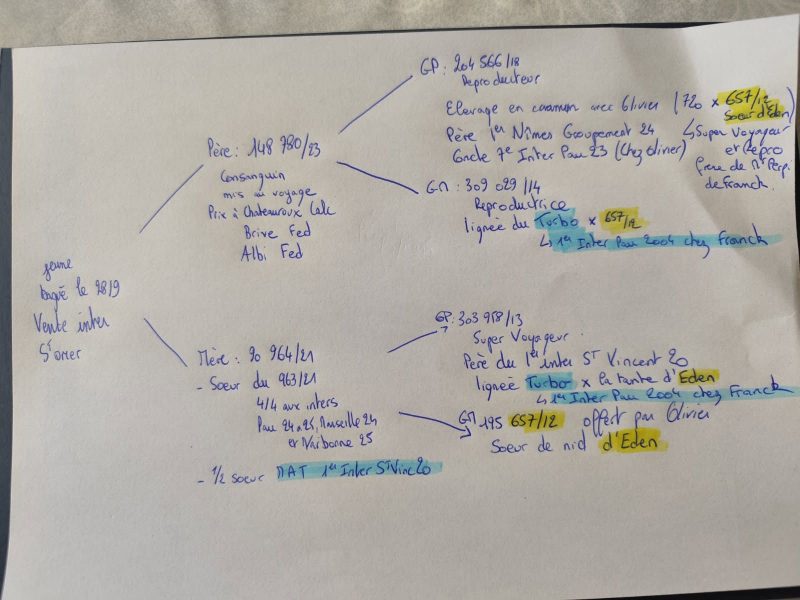 jeune
bagué le 28/9
Vente inter
St Omer
Père : 148 780/23
Consanguin
mis au voyage
Prix à Chateauroux Calc
Brive Fed
Albi Fed
GP : 204 566/18
Reproducteur
Elevage en commun avec Olivier (720 x 657/12
Soeur d'Eden)
Père 1er Nîmes Groupement 24
Oncle 7e Inter Pau 23 (Chez Olivier)
↳ Super Voyageur
et Repro
frère de Nt Perpi
de Franck.
GM : 309 029/14
Reproductrice
lignée du Turbo x 657/12
↳ 1er Inter Pau 2004 chez Franck
Mère : 20 964/21
- Soeur du 963/21
4/4 aux inters
Pau 24 25, Marseille 24
et Narbonne 25
- 1/2 soeur MAT 1er Inter St Vinc 20
GP : 303 958/13
Super Voyageur
Père du 1er inter St Vincent 20
lignée Turbo x la tante d'Eden
↳ 1er Inter Pau 2004 chez Franck
GM 195 657/12 offert par Olivier
Soeur de nid d'Eden